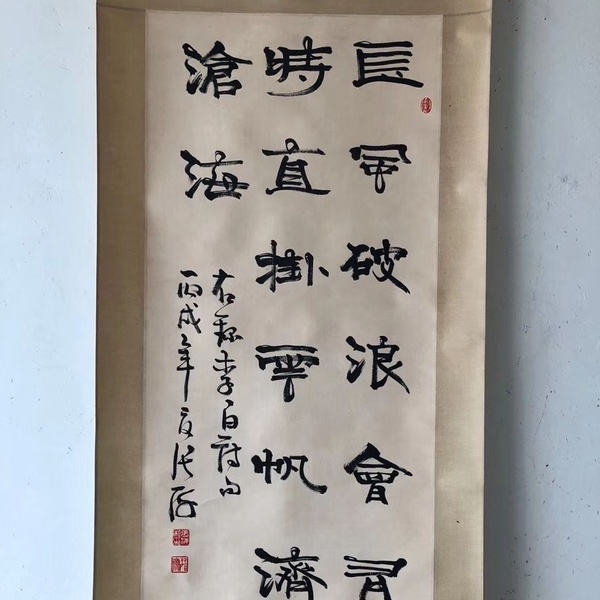 長風破浪會有
時直掛雲帆濟
滄海
右録李白詩句
丙戌年夏